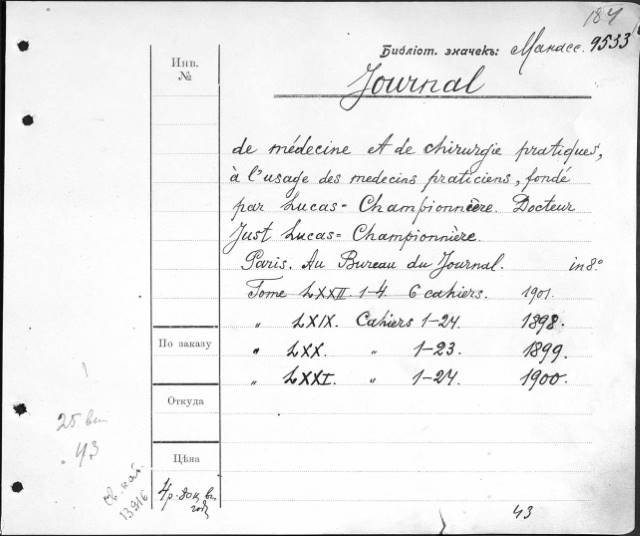 184
Библіот. значекъ: Манасс. 9533
Инв. №
Journal
de médecine et de chirurgie pratiques,
à l'usage des medecins praticiens, fondé
par Lucas=Championnière. Docteur
Just Lucas=Championnière.
Paris. Au Bureau du Journal. in 8º
Tome LXXII 1-4. 6 cahiers. 1901.
„ LXIX. Cahiers 1-24. 1898.
По заказу
„ LXX. „ 1-23. 1899.
„ LXXI. „ 1-24. 1900.
Откуда
25
43
Цѣна
13916
4 р.
43